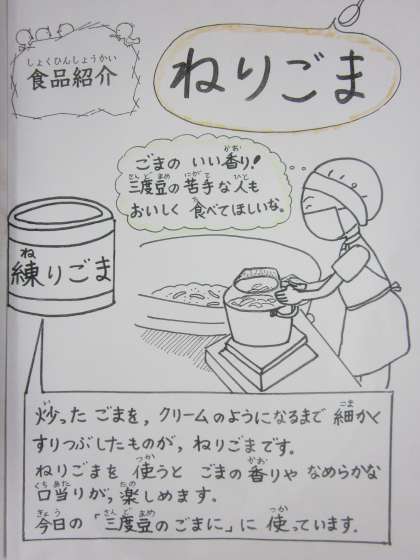 しょくひんしょうかい
食品紹介
ねりごま
ごまの いい香り!
三度豆の苦手な人も
おいしく 食べてほしいな。
練りごま
炒った ごまを, クリームのようになるまで 細かく
すりつぶしたものが, ねりごまです。
ねりごまを 使うと ごまの香りや なめらかな
口当りが, 楽しめます。
今日の「三度豆のごまに」に 使っています。